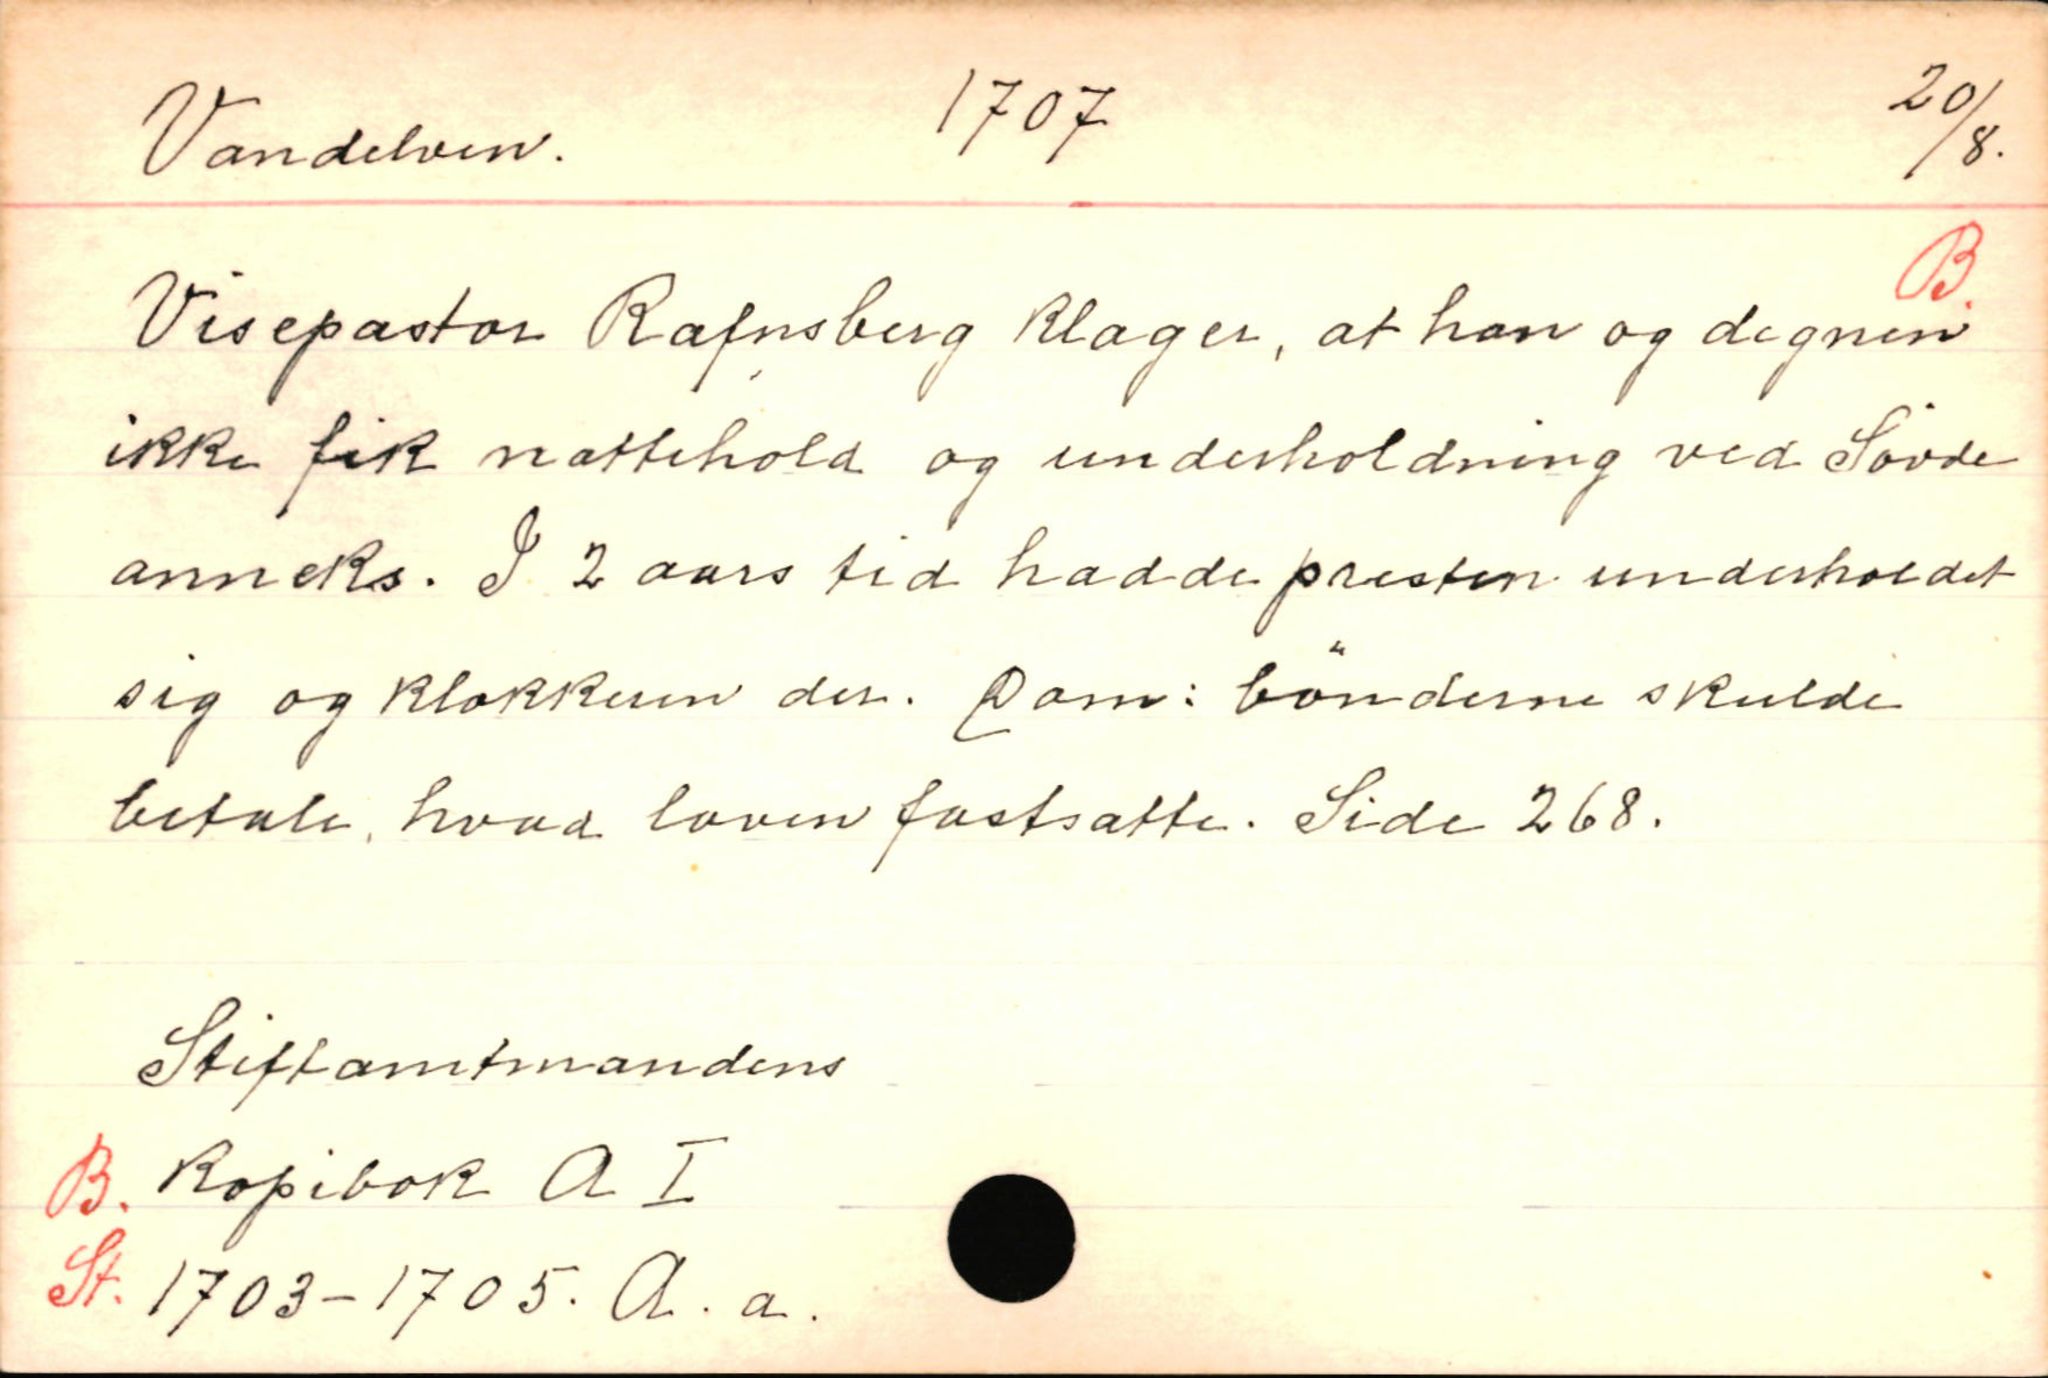 Vandelven. 1707 20/8.
B.
Visepastor Rafnsberg klager, at han og degnen
ikke fik nattehold og underholdning ved Sövde
anneks. I 2 aars tid hadde presten underholdet
sig og klokkeren der. Dom: bönderne skulde
betale, hvad loven fastsatte. Side 268.
Stiftamtmandens
B. Kopibok A I
St. 1703-1705. A. a.